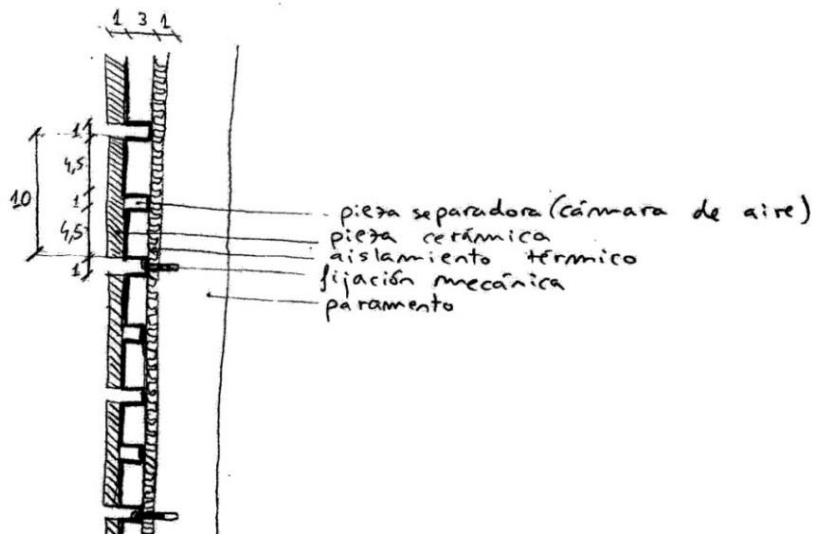 1 3 1
1
4,5
10
1
4,5
1
pieza separadora (cámara de aire)
pieza cerámica
aislamiento térmico
fijación mecánica
paramento